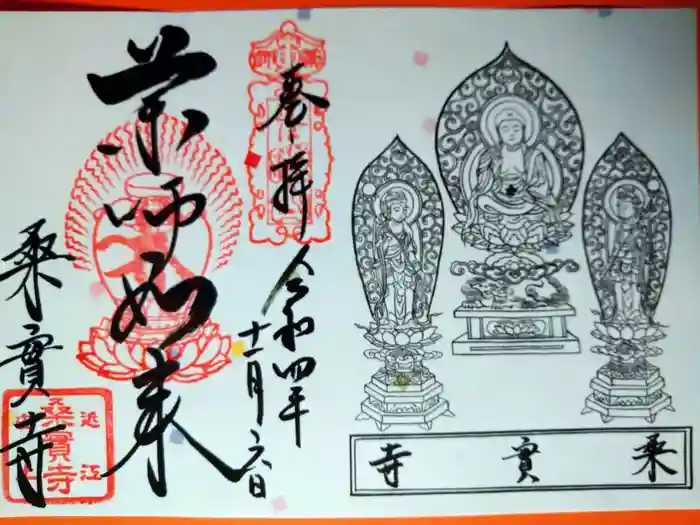 奉拝
令和四年
十一月六日
薬師如来
桑實寺
近江
桑實寺
桑實寺